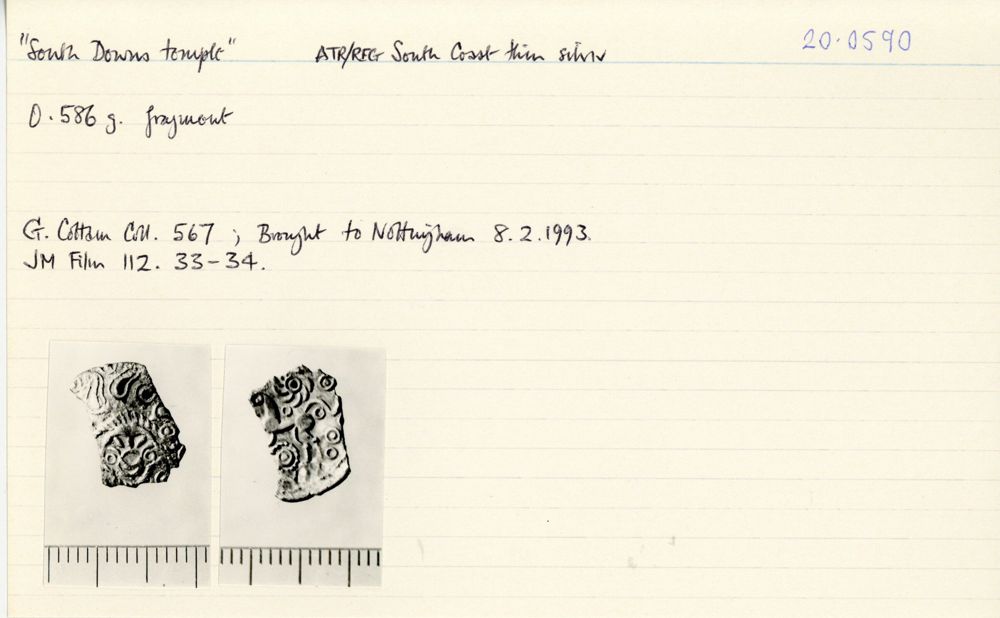 "South Downs temple" ATR/REG South Coast thin silver 20.0590
0.586 g. fragment
G. Cottam Coll. 567 ; Brought to Nottingham 8.2.1993.
JM Film 112. 33-34.